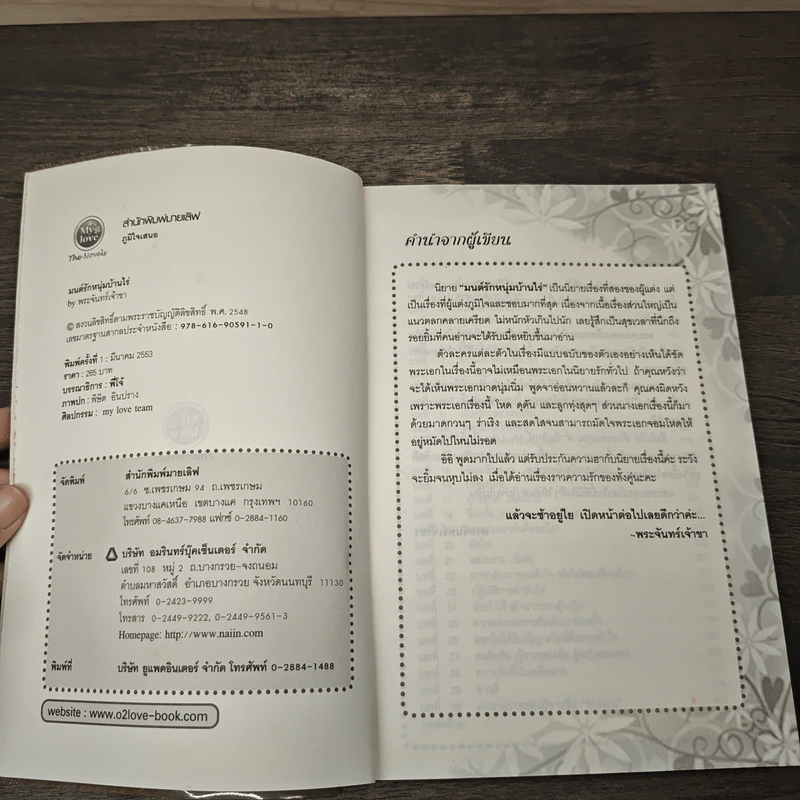 My love
The Novels
สำนักพิมพ์มายเลิฟ
ภูมิใจเสนอ
มนต์รักหนุ่มบ้านไร่
by พระจันทร์เจ้าขา
© สงวนลิขสิทธิ์ตามพระราชบัญญัติลิขสิทธิ์ พ.ศ. 2548
เลขมาตรฐานสากลประจำหนังสือ : 978-616-90591-1-0
พิมพ์ครั้งที่ 1 : มีนาคม 2553
ราคา : 265 บาท
บรรณาธิการ : พี่โจ้
ภาพปก : พิษิต อินปราง
ศิลปกรรม : my love team
จัดพิมพ์ สำนักพิมพ์มายเลิฟ
6/6 ซ.เพชรเกษม 94 ถ.เพชรเกษม
แขวงบางแคเหนือ เขตบางแค กรุงเทพฯ 10160
โทรศัพท์ 08-4637-7988 แฟกซ์ 0-2884-1160
จัดจำหน่าย บริษัท อมรินทร์บุ๊คเซ็นเตอร์ จำกัด
เลขที่ 108 หมู่ 2 ถ.บางกรวย-จงถนอม
ตำบลมหาสวัสดิ์ อำเภอบางกรวย จังหวัดนนทบุรี 11130
โทรศัพท์ 0-2423-9999
โทรสาร 0-2449-9222, 0-2449-9561-3
Homepage: http://www.naiin.com
พิมพ์ที่ บริษัท ยูแพดอินเตอร์ จำกัด โทรศัพท์ 0-2884-1488
website : www.o2love-book.com
คำนำจากผู้เขียน
นิยาย "มนต์รักหนุ่มบ้านไร่" เป็นนิยายเรื่องที่สองของผู้แต่ง แต่
เป็นเรื่องที่ผู้แต่งภูมิใจและชอบมากที่สุด เนื่องจากเนื้อเรื่องส่วนใหญ่เป็น
แนวตลกคลายเครียด ไม่หนักหัวเกินไปนัก เลยรู้สึกเป็นสุขเวลาที่นึกถึง
รอยยิ้มที่คนอ่านจะได้รับเมื่อหยิบขึ้นมาอ่าน
ตัวละครแต่ละตัวในเรื่องมีแบบฉบับของตัวเองอย่างเห็นได้ชัด
พระเอกในเรื่องนี้อาจไม่เหมือนพระเอกในนิยายรักทั่วไป ถ้าคุณหวังว่า
จะได้เห็นพระเอกมาดนุ่มนิ่ม พูดจาอ่อนหวานแล้วละก็ คุณคงผิดหวัง
เพราะพระเอกเรื่องนี้ โหด ดุดัน และลูกทุ่งสุดๆ ส่วนนางเอกเรื่องนี้ก็มา
ด้วยมาดกวนๆ ร่าเริง และสดใสจนสามารถมัดใจพระเอกจอมโหดให้
อยู่หมัดไปไหนไม่รอด
อิอิ พูดมากไปแล้ว แต่รับประกันความฮากับนิยายเรื่องนี้ค่ะ ระวัง
จะยิ้มจนหุบไม่ลง เมื่อได้อ่านเรื่องราวความรักของทั้งคู่นะคะ
แล้วจะช้าอยู่ไย เปิดหน้าต่อไปเลยดีกว่าค่ะ...
~พระจันทร์เจ้าขา